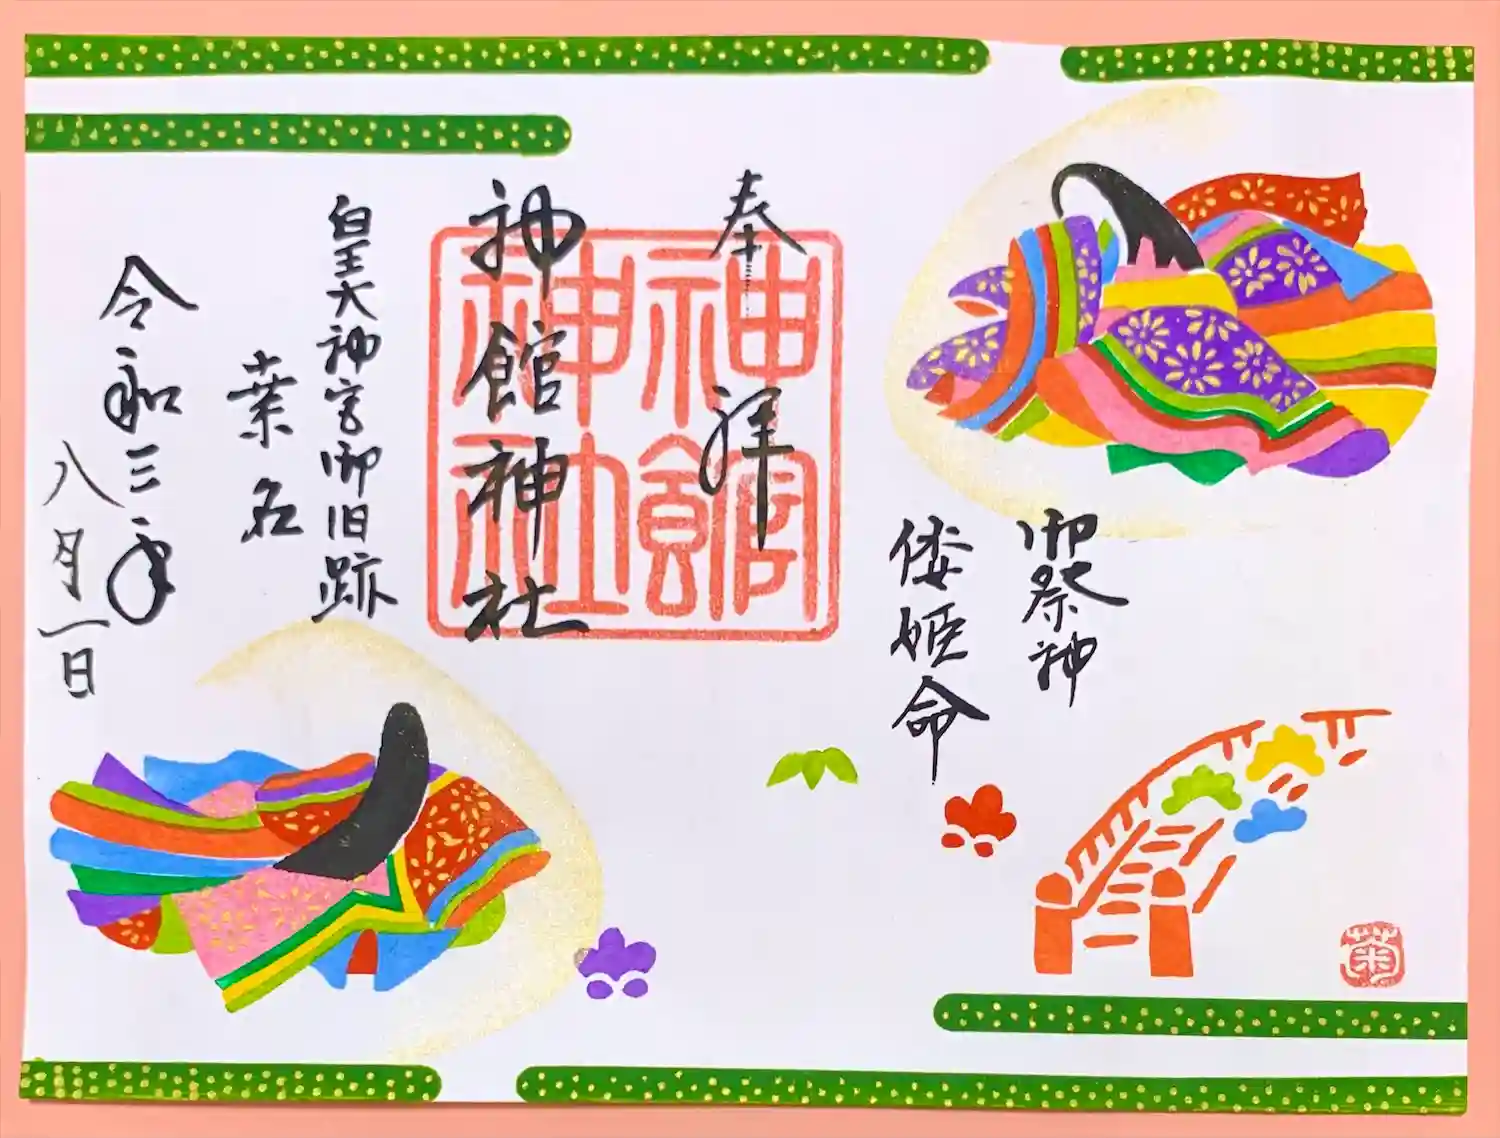 奉拝
御祭神
倭姫命
神館神社
神館神社
皇大神宮御旧跡
桑名
令和三年
八月一日
菊